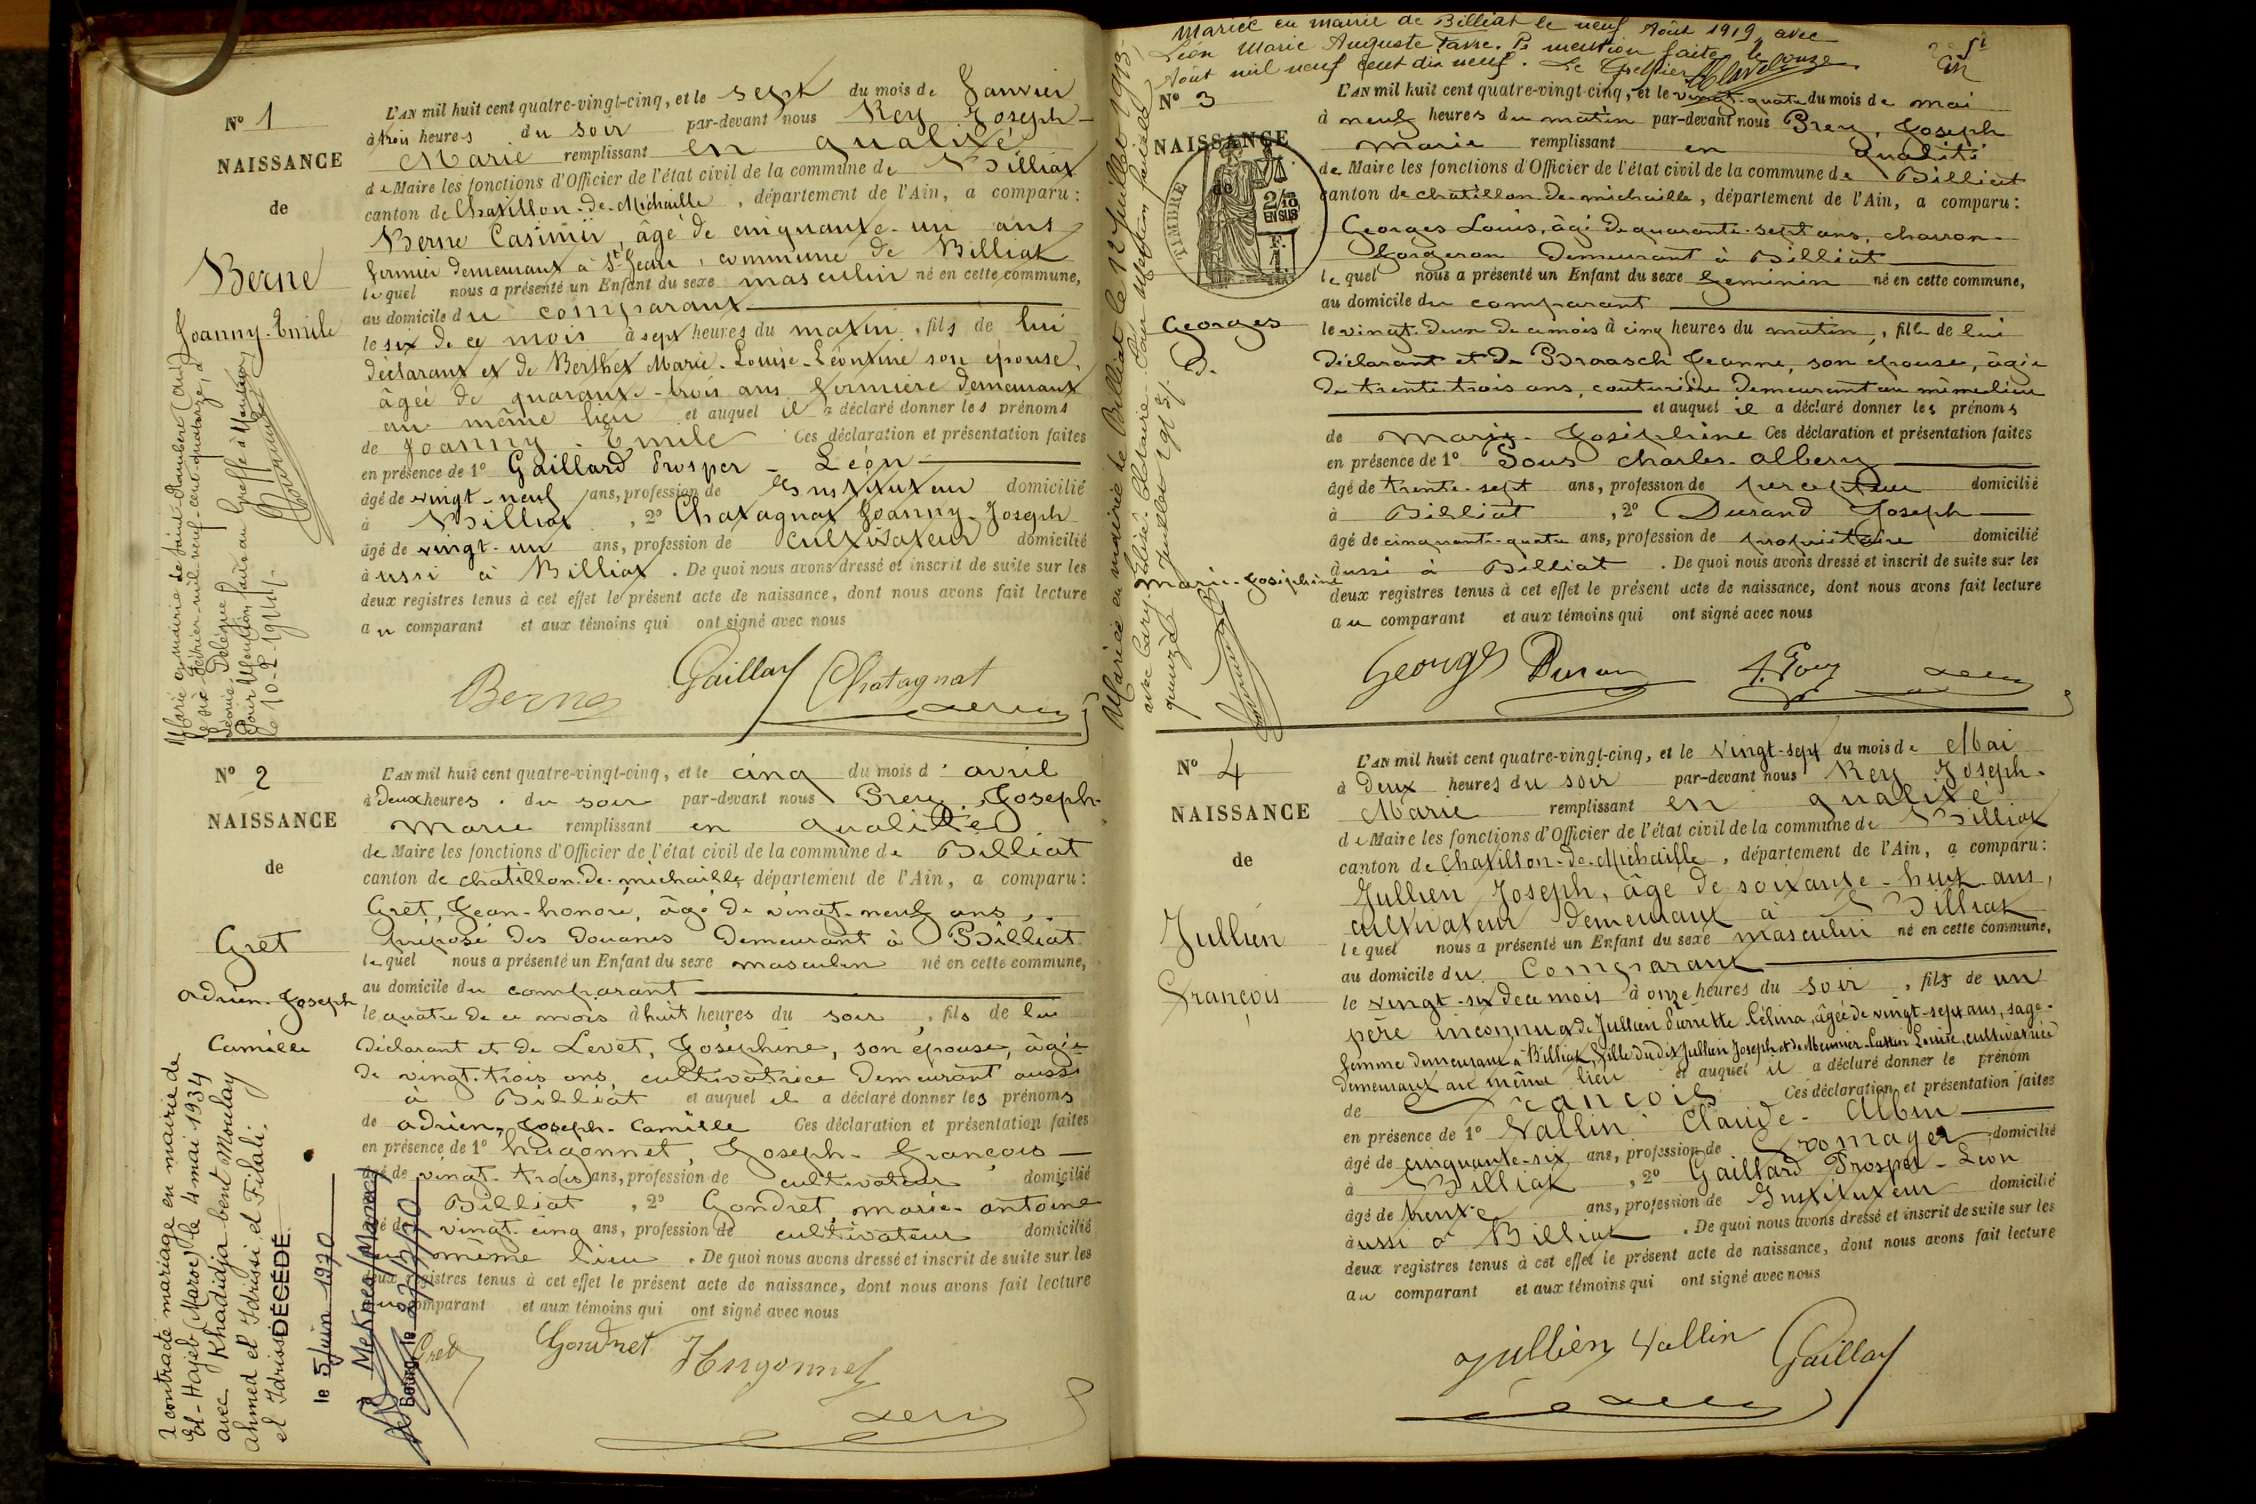 N° 1
NAISSANCE
de
Berne
Joanny-Emile
L'AN mil huit cent quatre-vingt-cinq, et le sept du mois de Janvier
à trois heures du soir par-devant nous Rey Joseph-
Marie remplissant en qualité
de Maire les fonctions d'Officier de l'état civil de la commune de Billiat
canton de Chatillon-de-Michaille, département de l'Ain, a comparu:
Berne Casimir, âgé de cinquante-un ans
fermier demeurant à St Jean, commune de Billiat
lequel nous a présenté un Enfant du sexe masculin né en cette commune,
au domicile du comparant
le six de ce mois à sept heures du matin, fils de lui
déclarant et de Berthet Marie-Louise-Léontine son épouse,
âgée de quarante-trois ans fermière demeurant
au même lieu et auquel il a déclaré donner les prénoms
de Joanny-Emile Ces déclaration et présentation faites
en présence de 1° Gaillard Prosper-Léon
âgé de vingt-neuf ans, profession de Instituteur domicilié
à Billiat, 2° Chatagnat Joanny-Joseph
âgé de vingt-un ans, profession de cultivateur domicilié
aussi à Billiat. De quoi nous avons dressé et inscrit de suite sur les
deux registres tenus à cet effet le présent acte de naissance, dont nous avons fait lecture
au comparant et aux témoins qui ont signé avec nous
Berne Gaillard Chatagnat
Marié en mairie de Saint-Rambert (Ain)
le six Février mil neuf-cent quatorze, à
Pour Mention faite au Greffe à Nantua
le 10-2-1914
N° 2
NAISSANCE
de
Gret
Adrien-Joseph
Camille
L'AN mil huit cent quatre-vingt-cinq, et le cinq du mois d'avril
à deux heures du soir par-devant nous Rey Joseph-
Marie remplissant en qualité
de Maire les fonctions d'Officier de l'état civil de la commune de Billiat
canton de chatillon-de-michaille département de l'Ain, a comparu:
Gret, Jean-honoré, âgé de vingt-neuf ans,
préposé des douanes demeurant à Billiat
lequel nous a présenté un Enfant du sexe masculin né en cette commune,
au domicile du comparant
le quatre de ce mois à huit heures du soir, fils de lui
déclarant et de Levet, Joséphine, son épouse, âgée
de vingt-trois ans, cultivatrice demeurant aussi
à Billiat et auquel il a déclaré donner les prénoms
de adrien, Joseph-Camille Ces déclaration et présentation faites
en présence de 1° hugonnet, Joseph-François
âgé de vingt-trois ans, profession de cultivateur domicilié
Billiat, 2° Gondret marie-antoine
âgé de vingt-cinq ans, profession de cultivateur domicilié
même lieu. De quoi nous avons dressé et inscrit de suite sur les
deux registres tenus à cet effet le présent acte de naissance, dont nous avons fait lecture
au comparant et aux témoins qui ont signé avec nous
Gret Gondret Hugonnet
A contracté mariage en mairie de
El-Hajeb (Maroc) le 4 mai 1934
avec Khadidja bent Moulay
Ahmed el Idrissi el Filali.
el Idrissi
DÉCÉDÉ
le 5 Juin 1970
à Meknes (Maroc)
Bourg, le
Mariée en mairie de Billiat le neuf Août 1919, avec
Léon Marie Auguste Favre. Pr mention faite, le
Août mil neuf cent dix neuf. Le Greffier
N° 3
NAISSANCE
de
TIMBRE
2/10
EN SUS
F.
1
Georges
Marie-Joséphine
L'AN mil huit cent quatre-vingt-cinq, et le vingt-quatre du mois de mai
à neuf heures du matin par-devant nous Rey, Joseph
marie remplissant en qualité
de Maire les fonctions d'Officier de l'état civil de la commune de Billiat
canton de chatillon-de-michaille, département de l'Ain, a comparu:
Georges Louis, âgé de quarante-sept ans, charron-
forgeron demeurant à Billiat
lequel nous a présenté un Enfant du sexe feminin né en cette commune,
au domicile du comparant
le vingt-deux de ce mois à cinq heures du matin, fille de lui
déclarant et de Braasch Jeanne, son épouse, âgée
de trente-trois ans, couturière demeurant au même lieu
et auquel il a déclaré donner les prénoms
de Marie-Joséphine Ces déclaration et présentation faites
en présence de 1° Pous charles-albery
âgé de trente-sept ans, profession de percepteur domicilié
à Billiat, 2° Durand Joseph
âgé de cinquante-quatre ans, profession de propriétaire domicilié
aussi à Billiat. De quoi nous avons dressé et inscrit de suite sur les
deux registres tenus à cet effet le présent acte de naissance, dont nous avons fait lecture
au comparant et aux témoins qui ont signé avec nous
Georges Duran
Mariée en mairie de Billiat le 12 Juillet 1913
N° 4
NAISSANCE
de
Jullien
François
L'AN mil huit cent quatre-vingt-cinq, et le vingt-sept du mois de Mai
à deux heures du soir par-devant nous Rey Joseph-
Marie remplissant en qualité
de Maire les fonctions d'Officier de l'état civil de la commune de Billiat
canton de Chatillon-de-Michaille, département de l'Ain, a comparu:
Jullien Joseph, âgé de soixante-huit ans,
cultivateur demeurant à Billiat
lequel nous a présenté un Enfant du sexe masculin né en cette commune,
au domicile du Comparant
le vingt-six de ce mois à onze heures du soir, fils de un
père inconnu et de Jullien Pierrette Célina, âgée de vingt-sept ans, sage-
femme demeurant à Billiat, fille du dit Jullien Joseph et de Meunier Louise, cultivatrice
demeurant au même lieu et auquel il a déclaré donner le prénom
de François Ces déclaration et présentation faites
en présence de 1° Vallin Claude-Albin
âgé de cinquante-six ans, profession de fromager domicilié
à Billiat, 2° Gaillard Prosper-Léon
âgé de trente ans, profession de Instituteur domicilié
aussi à Billiat. De quoi nous avons dressé et inscrit de suite sur les
deux registres tenus à cet effet le présent acte de naissance, dont nous avons fait lecture
au comparant et aux témoins qui ont signé avec nous
Jullien Vallin Gaillard